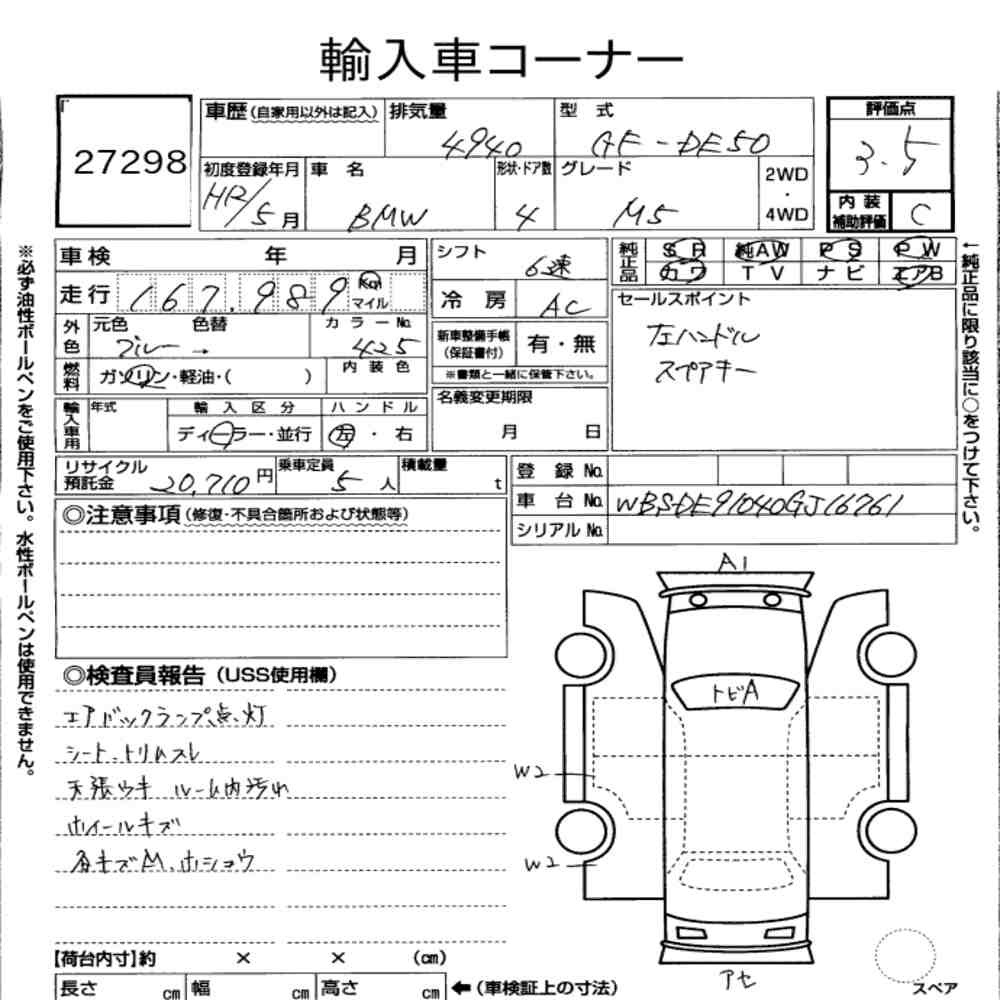 輸入車コーナー
27298
車歴(自家用以外は記入) 排気量 型式 評価点
4940 GF-DE50 3.5
初度登録年月 車名 形状・ドア数 グレード 2WD・4WD 内装補助評価
5月 BMW 4 M5 C
車検 年 月 シフト 6速
純正品 SR 純AW PS PW
カワ TV ナビ エアB
走行 167,989 Km マイル 冷房 AC
セールスポイント
左ハンドル
スペアキー
外色 元色 色替 カラーNo.
ブルー → 425
新車整備手帳(保証書付) 有・無
※書類と一緒に保管下さい。
燃料 ガソリン・軽油・( ) 内装色
名義変更期限
月 日
輸入車用 年式 輸入区分 ハンドル
ディーラー・並行 左・右
リサイクル預託金 20,710円 乗車定員 5人 積載量 t
登録No.
車台No. WBSDE91040GJ16761
シリアルNo.
◎注意事項(修復・不具合箇所および状態等)
◎検査員報告(USS使用欄)
エアバックランプ点灯
シート、トリムスレ
天張ウキ ルーム内汚れ
ホイールキズ
各キズM、ホショウ
A1
トビA
W2
W2
アセ
スペア
【荷台内寸】約 × × (cm)
長さ cm 幅 cm 高さ cm ←(車検証上の寸法)
※必ず油性ボールペンをご使用下さい。水性ボールペンは使用できません。
←純正品に限り該当に○をつけて下さい。